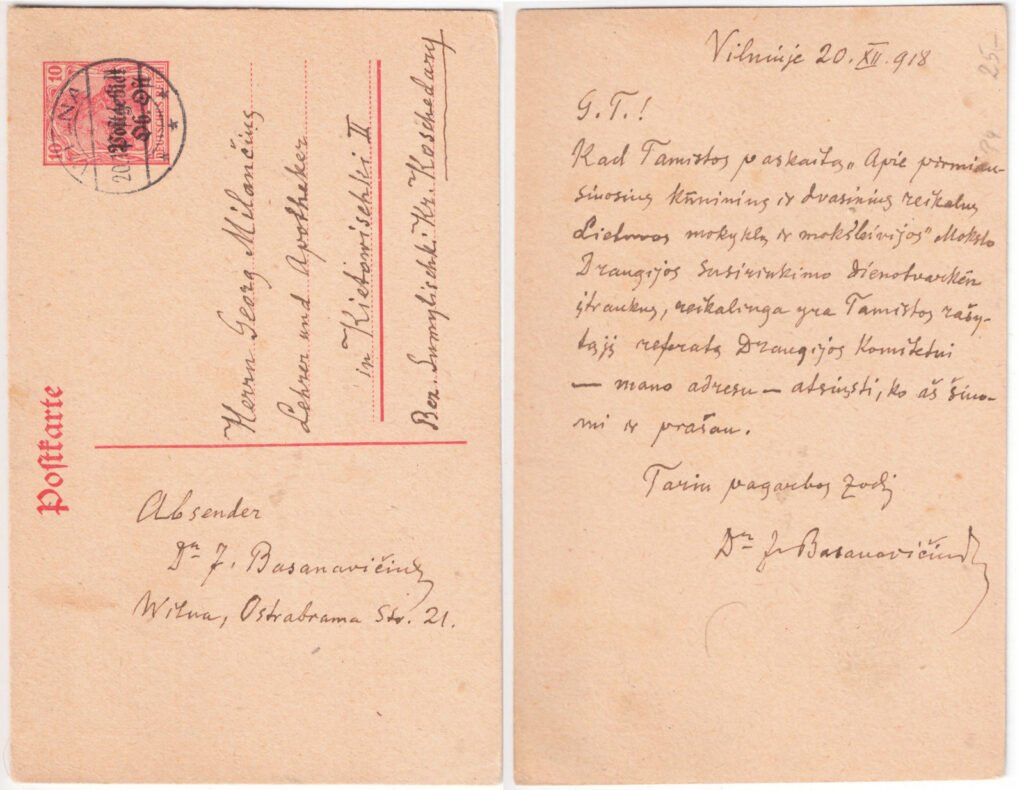 Postkarte
10
10
DEUTSCHES REICH
Postgebiet
Ob. Ost
Herrn Georg Milančius
Lehrer und Apotheker
in Kietowischki II
Bez. Sumylischki Kr. Koschedary
Absender
Dr J. Basanavičius
Wilna, Ostrabrama Str. 21.
Vilniuje 20. XII. 918
25-
G. T.!
Kad Tamistos paskaitą „Apie pirmiau-
siuosius kūninius ir dvasinius reikalus
Lietuvos mokyklų ir moksleivijos" Mokslo
Draugijos Susirinkimo dienotvarkėn
įtraukus, reikalinga yra Tamistos rašy-
tąjį referatą Draugijos Komitetui
— mano adresu — atsiųsti, ko aš šiuo-
mi ir prašau.
Tariu pagarbos žodį
Dr J. Basanavičius